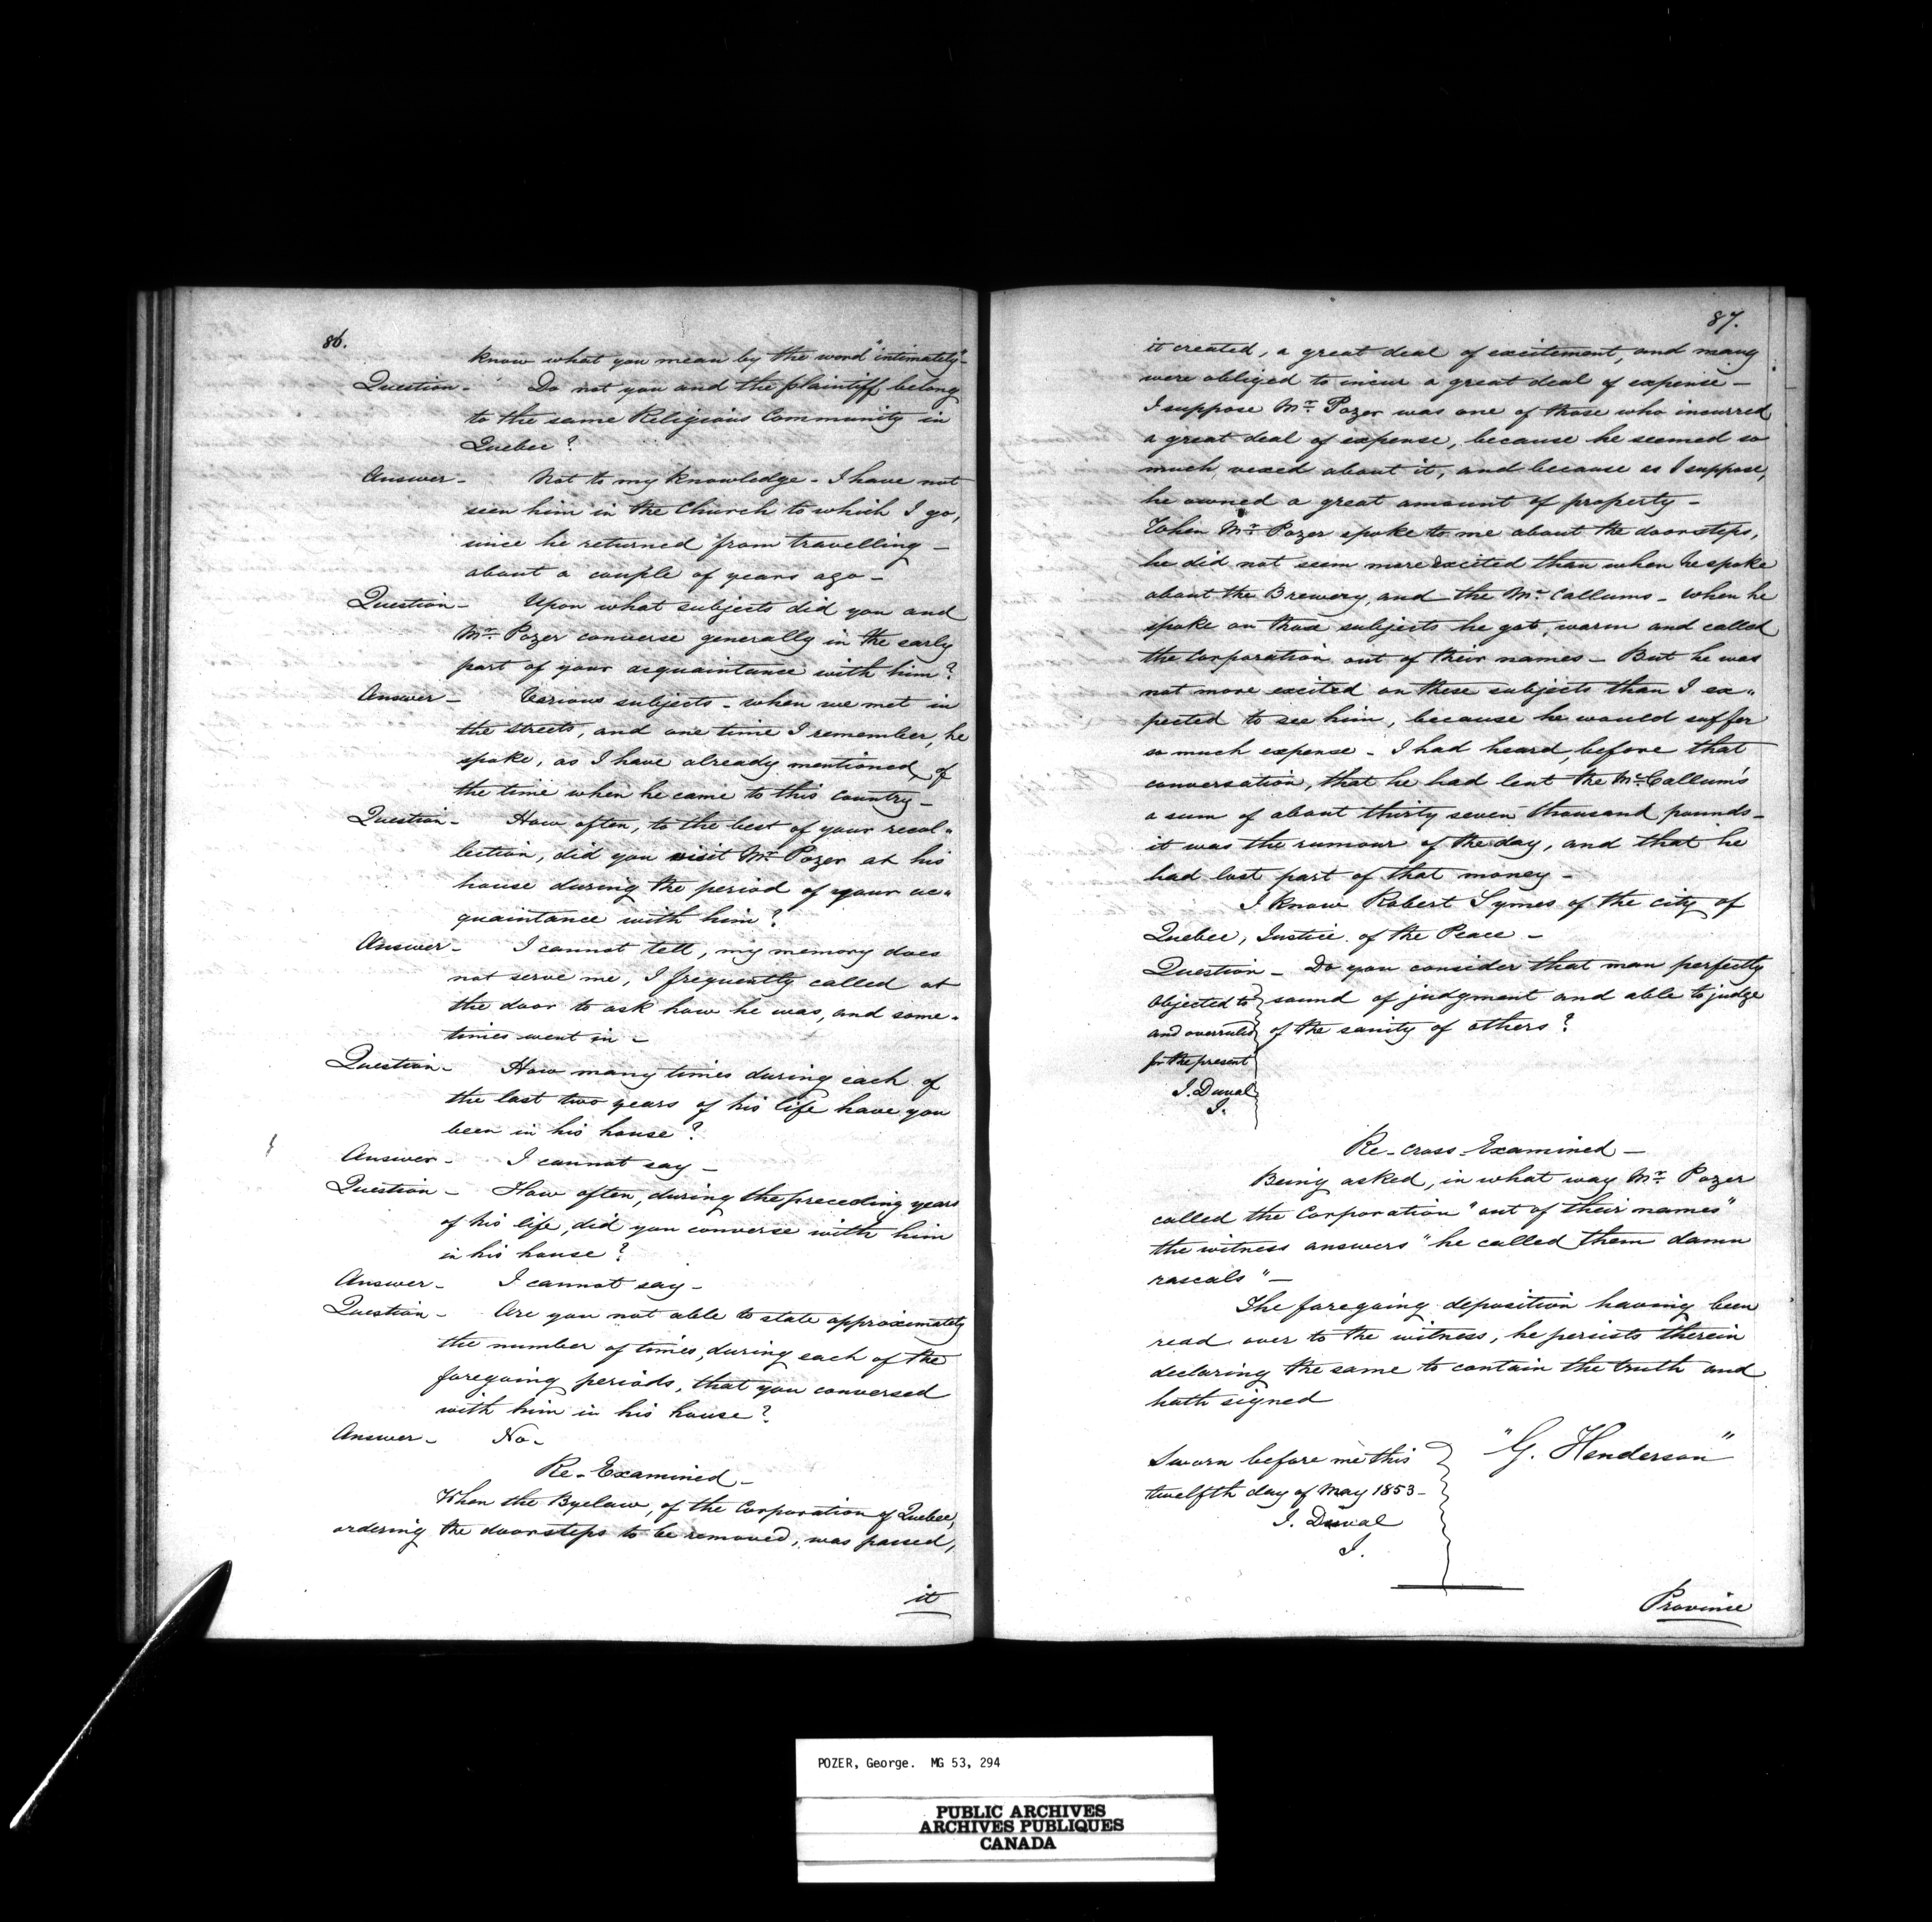 86.
know what you mean by the word "intimately"-
Question - Do not you and the plaintiff belong
to the same Religious Community in
Quebec?
Answer - Not to my knowledge - I have not
seen him in the Church to which I go,
since he returned from travelling -
about a couple of years ago -
Question - Upon what subjects did you and
Mr. Pozer converse generally in the early
part of your acquaintance with him?
Answer - Various subjects - when we met in
the streets, and one time I remember, he
spoke, as I have already mentioned, of
the time when he came to this Country -
Question - How often, to the best of your recol"
lection, did you visit Mr. Pozer at his
house during the period of your ac"
quaintance with him?
Answer - I cannot tell, my memory does
not serve me, I frequently called at
the door to ask how he was, and some-
times went in -
Question - How many times during each of
the last two years of his life have you
been in his house?
Answer - I cannot say -
Question - How often, during the preceding years
of his life, did you converse with him
in his house?
Answer - I cannot say -
Question - Are you not able to state approximately
the number of times, during each of the
foregoing periods, that you conversed
with him in his house?
Answer - No -
Re-Examined -
When the Byelaw, of the Corporation of Quebec,
ordering the doorsteps to be removed, was passed,
it
87.
it created, a great deal of excitement, and many
were obliged to incur a great deal of expense -
I suppose Mr. Pozer was one of those who incurred
a great deal of expense, because he seemed so
much vexed about it, and because as I suppose,
he owned a great amount of property -
When Mr. Pozer spoke to me about the doorsteps,
he did not seem more excited than when he spoke
about the Brewery, and the McCallums - When he
spoke on those subjects he got warm and called
the Corporation out of their names - But he was
not more excited on these subjects than I ex"
pected to see him, because he would suffer
so much expense - I had heard, before that
conversation, that he had lent the McCallum's
a sum of about thirty seven thousand pounds -
it was the rumour of the day, and that he
had lost part of that money -
I know Robert Symes of the city of
Quebec, Justice of the Peace -
Question - Do you consider that man perfectly
Objected to sound of judgment and able to judge
and overruled of the sanity of others?
for the present
J. Duval
J.
Re-cross-Examined -
Being asked, in what way Mr. Pozer
called the Corporation "out of their names"
the witness answers "he called them damn
rascals" -
The foregoing deposition having been
read over to the witness, he persists therein
declaring the same to contain the truth and
hath signed
"G. Henderson"
Sworn before me this
twelfth day of May 1853 -
J. Duval
J.
Province
POZER, George. MG 53, 294
PUBLIC ARCHIVES
ARCHIVES PUBLIQUES
CANADA